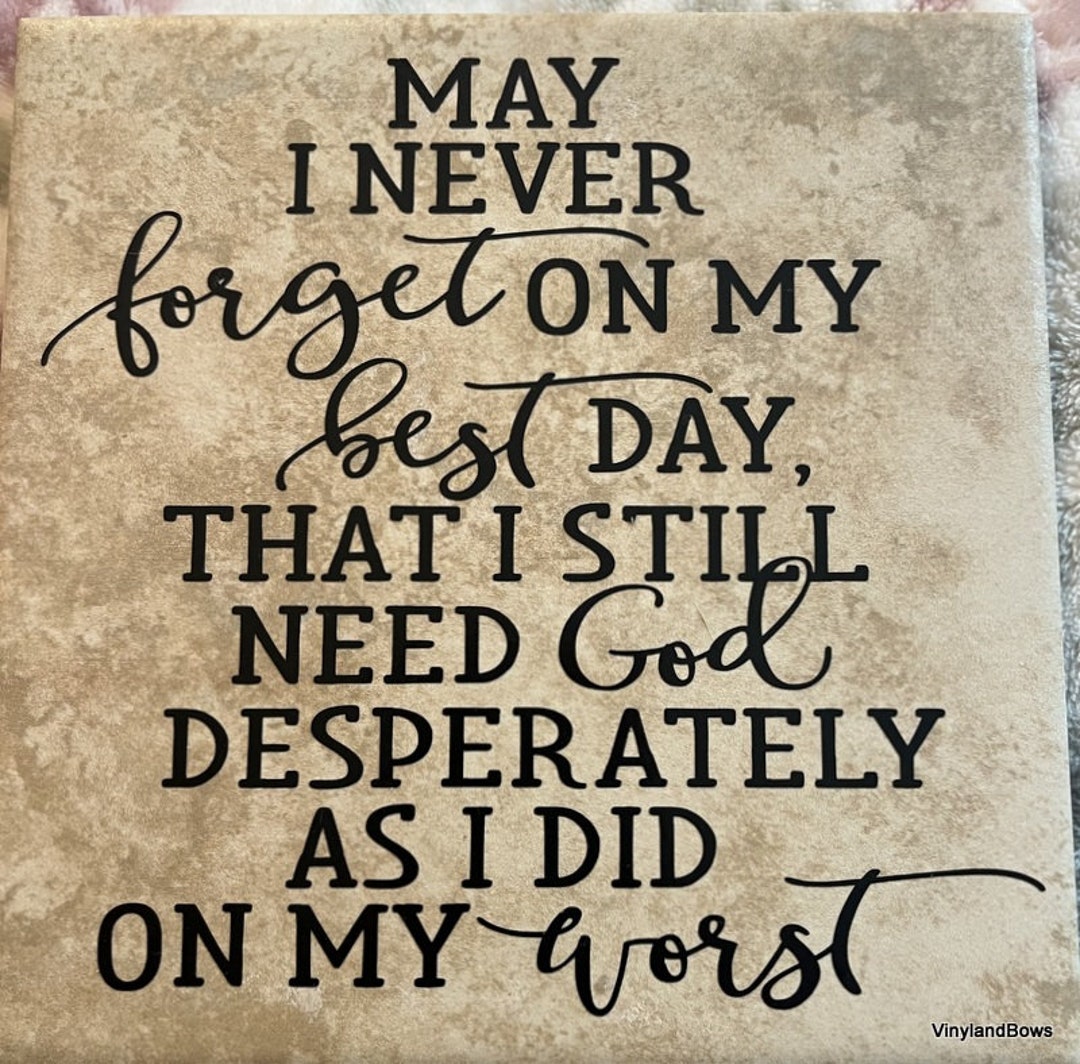 MAY
I NEVER
forget ON MY
best DAY,
THAT I STILL
NEED God
DESPERATELY
AS I DID
ON MY worst
VinylandBows